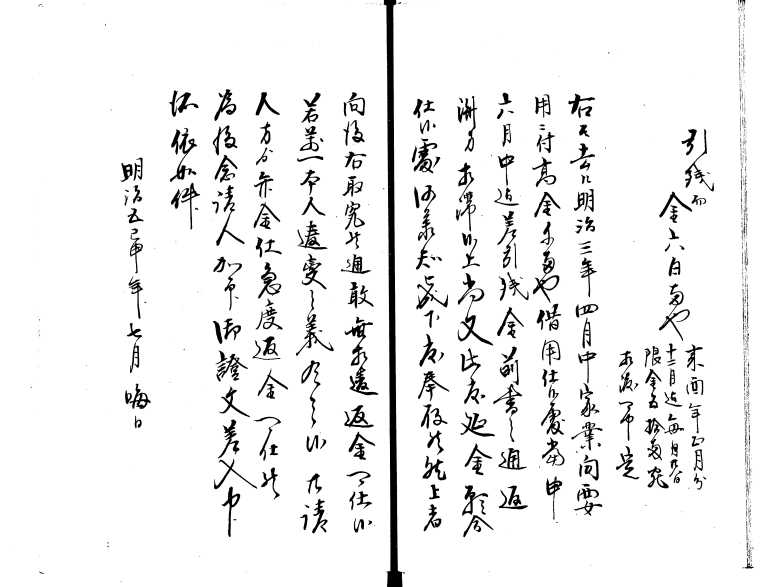 引残而
金六百両也
来酉年正月分
十二月迄毎月
限金五拾両宛
相渡可申定
右者明治三年四月中家業向要
用ニ付高金千両也借用仕候處當申
六月中迄差引残金前書之通返
済方相滞候上尚又此度延金願合
仕候處御承知被下度奉存候然上者
向後右取究之通敢無相違返金可仕候
若萬一本人違変之義有之候ハ請
人方分弁金仕急度返金可仕候
為後念請人加印御證文差入申
依如件
明治五申年七月晦日